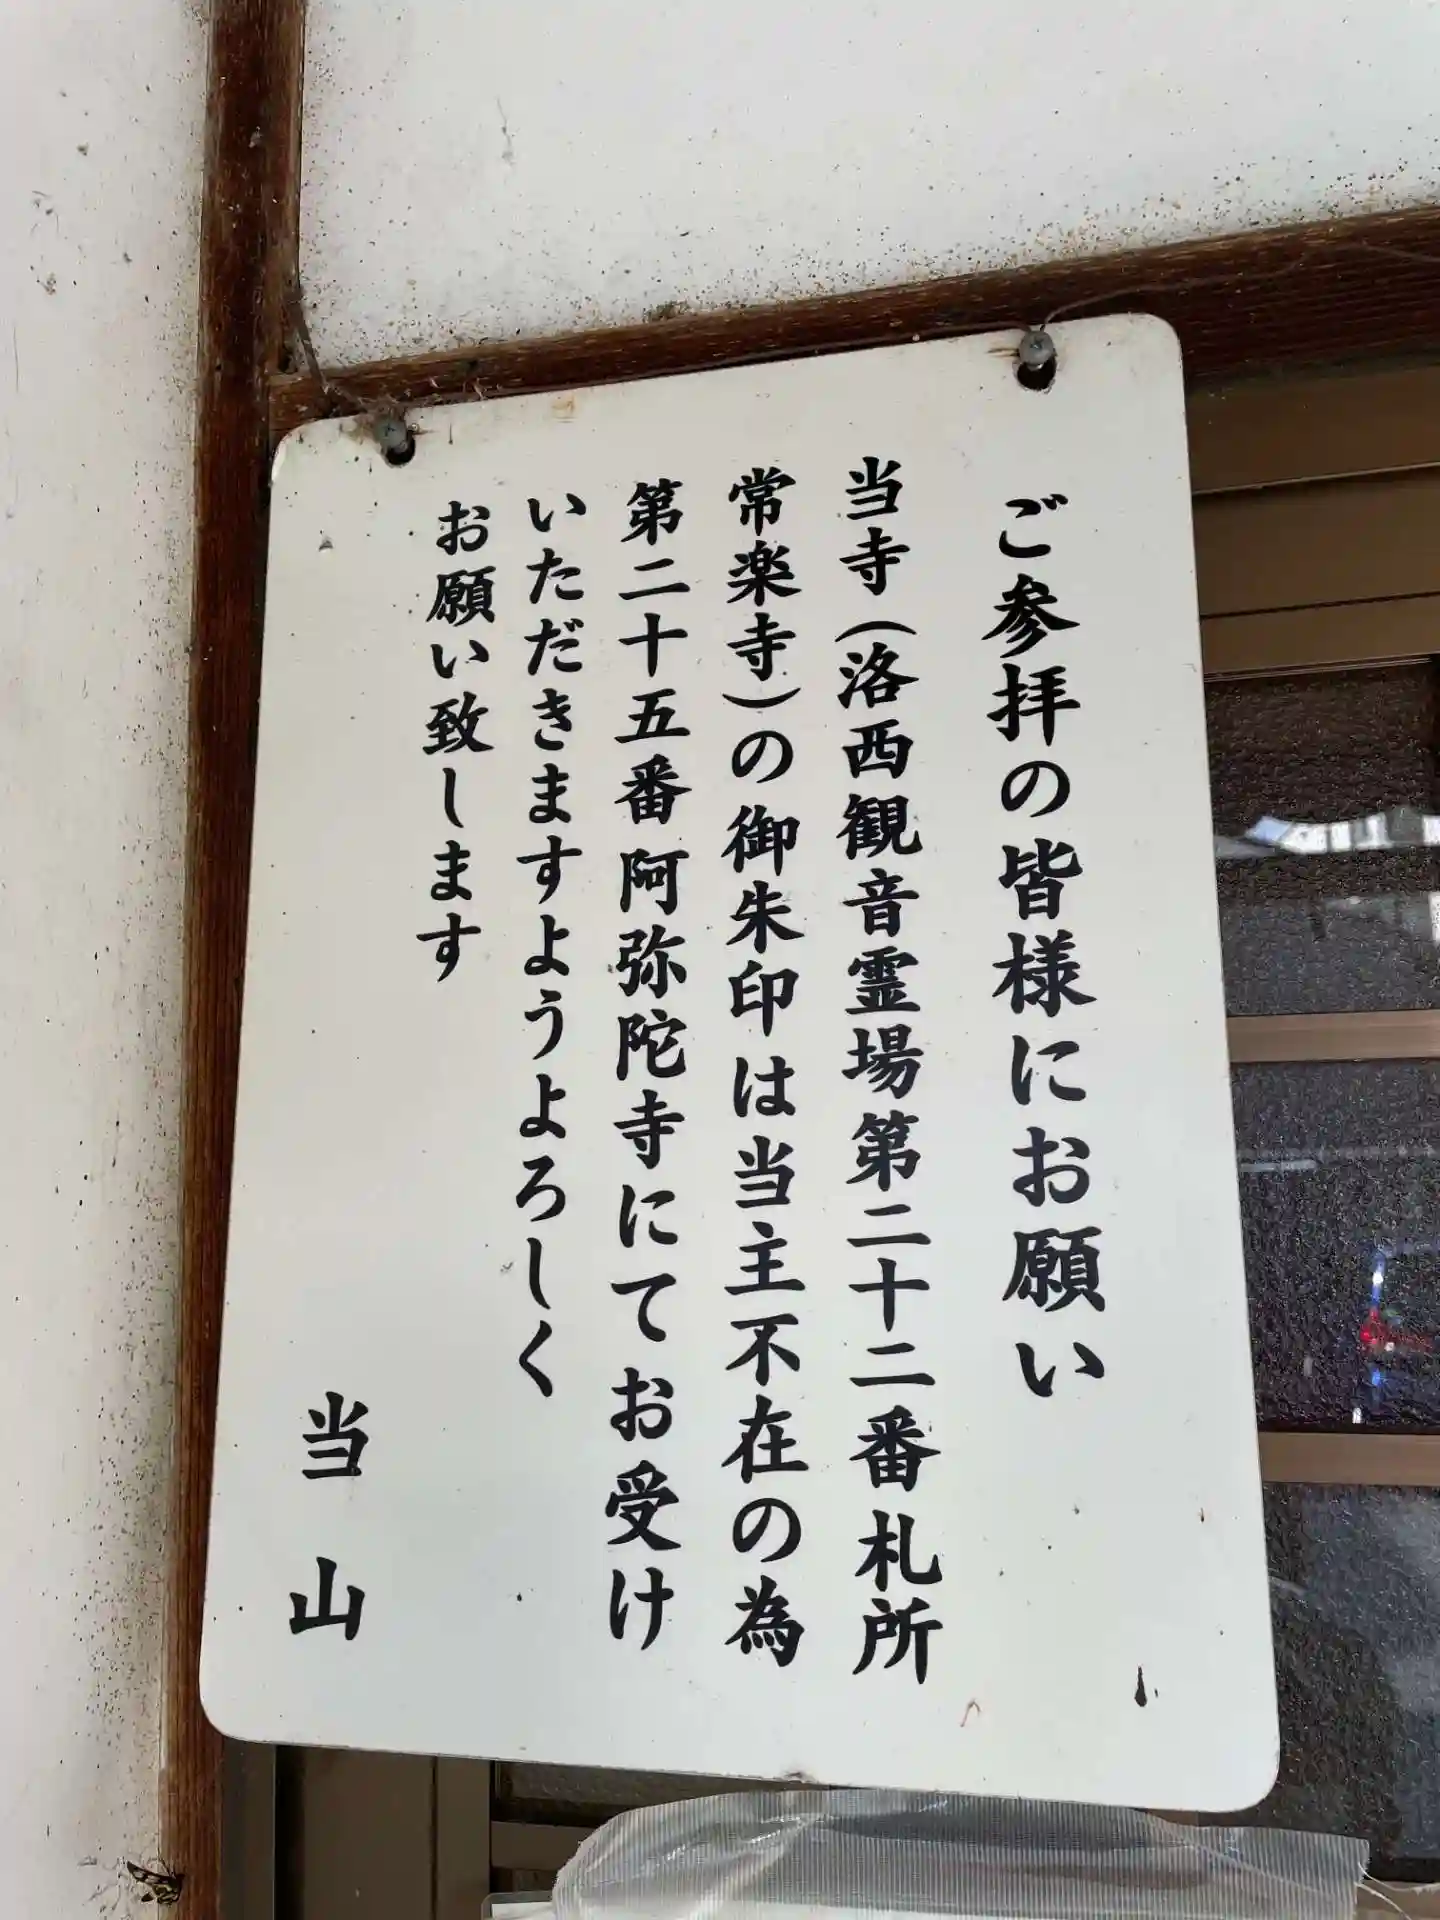 ご参拝の皆様にお願い
当寺(洛西観音霊場第二十二番札所
常楽寺)の御朱印は当主不在の為
第二十五番阿弥陀寺にてお受け
いただきますようよろしく
お願い致します
当山